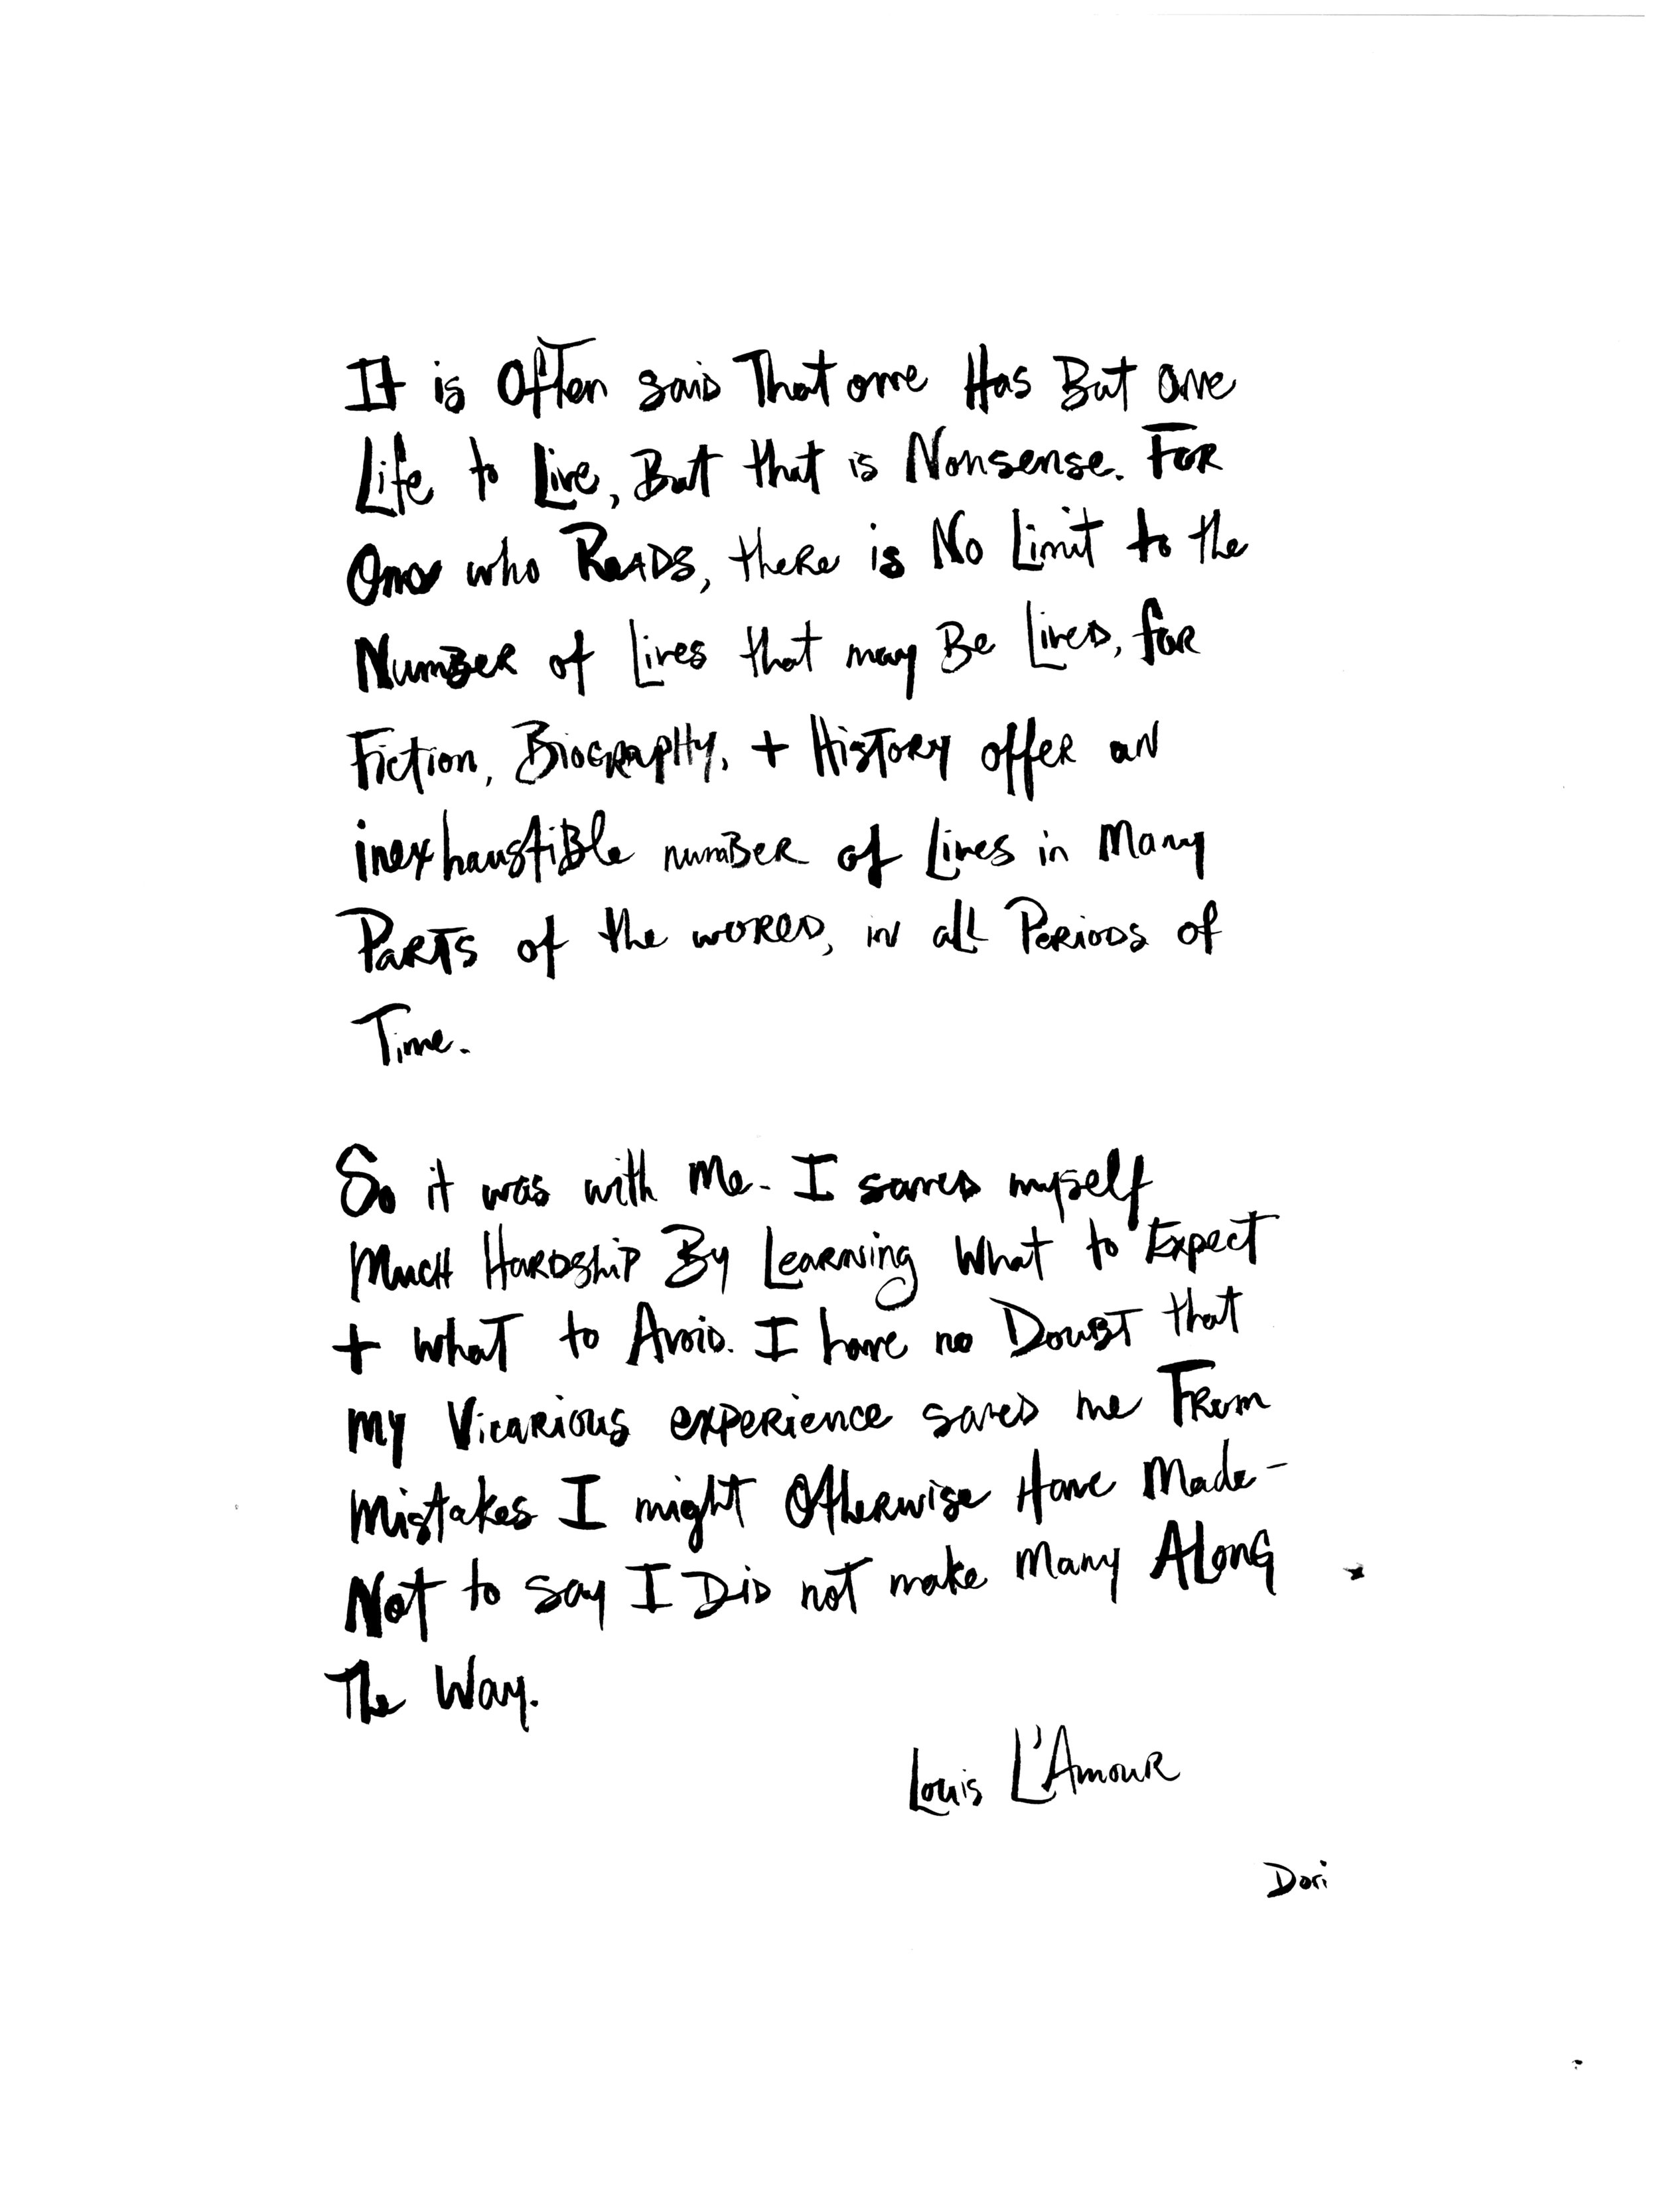 It is Often said That one Has But one
Life to Live, But that is Nonsense. For
One who Reads, there is No Limit to the
Number of Lives that may Be Lived, for
Fiction, Biography, + History offer an
inexhaustible number of Lives in Many
Parts of the world, in all Periods of
Time.
So it was with Me. I saved myself
Much Hardship By Learning What to Expect
+ what to Avoid. I have no Doubt that
my Vicarious experience saved me From
mistakes I might Otherwise Have Made-
Not to say I Did not make Many Along
The Way.
Louis L'Amour
Dori